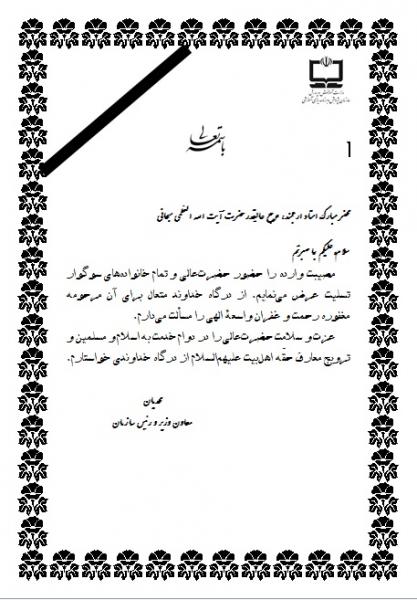 وزارت آموزش و پرورش
سازمان پژوهش و برنامه‌ریزی آموزشی
باسمه تعالی
1
محضر مبارک استاد ارجمند، مرجع عالیقدر حضرت آیت الله العظمی سبحانی
سلام علیکم بما صبرتم
مصیبت وارده را حضور حضرت‌عالی و تمام خانواده‌های سوگوار
تسلیت عرض می‌نمایم. از درگاه خداوند متعال برای آن مرحومه
مغفوره رحمت و غفران واسعهٔ الهی را مسألت می‌دارم.
عزت و سلامت حضرت‌عالی را در دوام خدمت به اسلام و مسلمین و
ترویج معارف حقّه اهل‌بیت علیهم‌السلام از درگاه خداوندی خواستارم.
محمدیان
معاون وزیر و رئیس سازمان